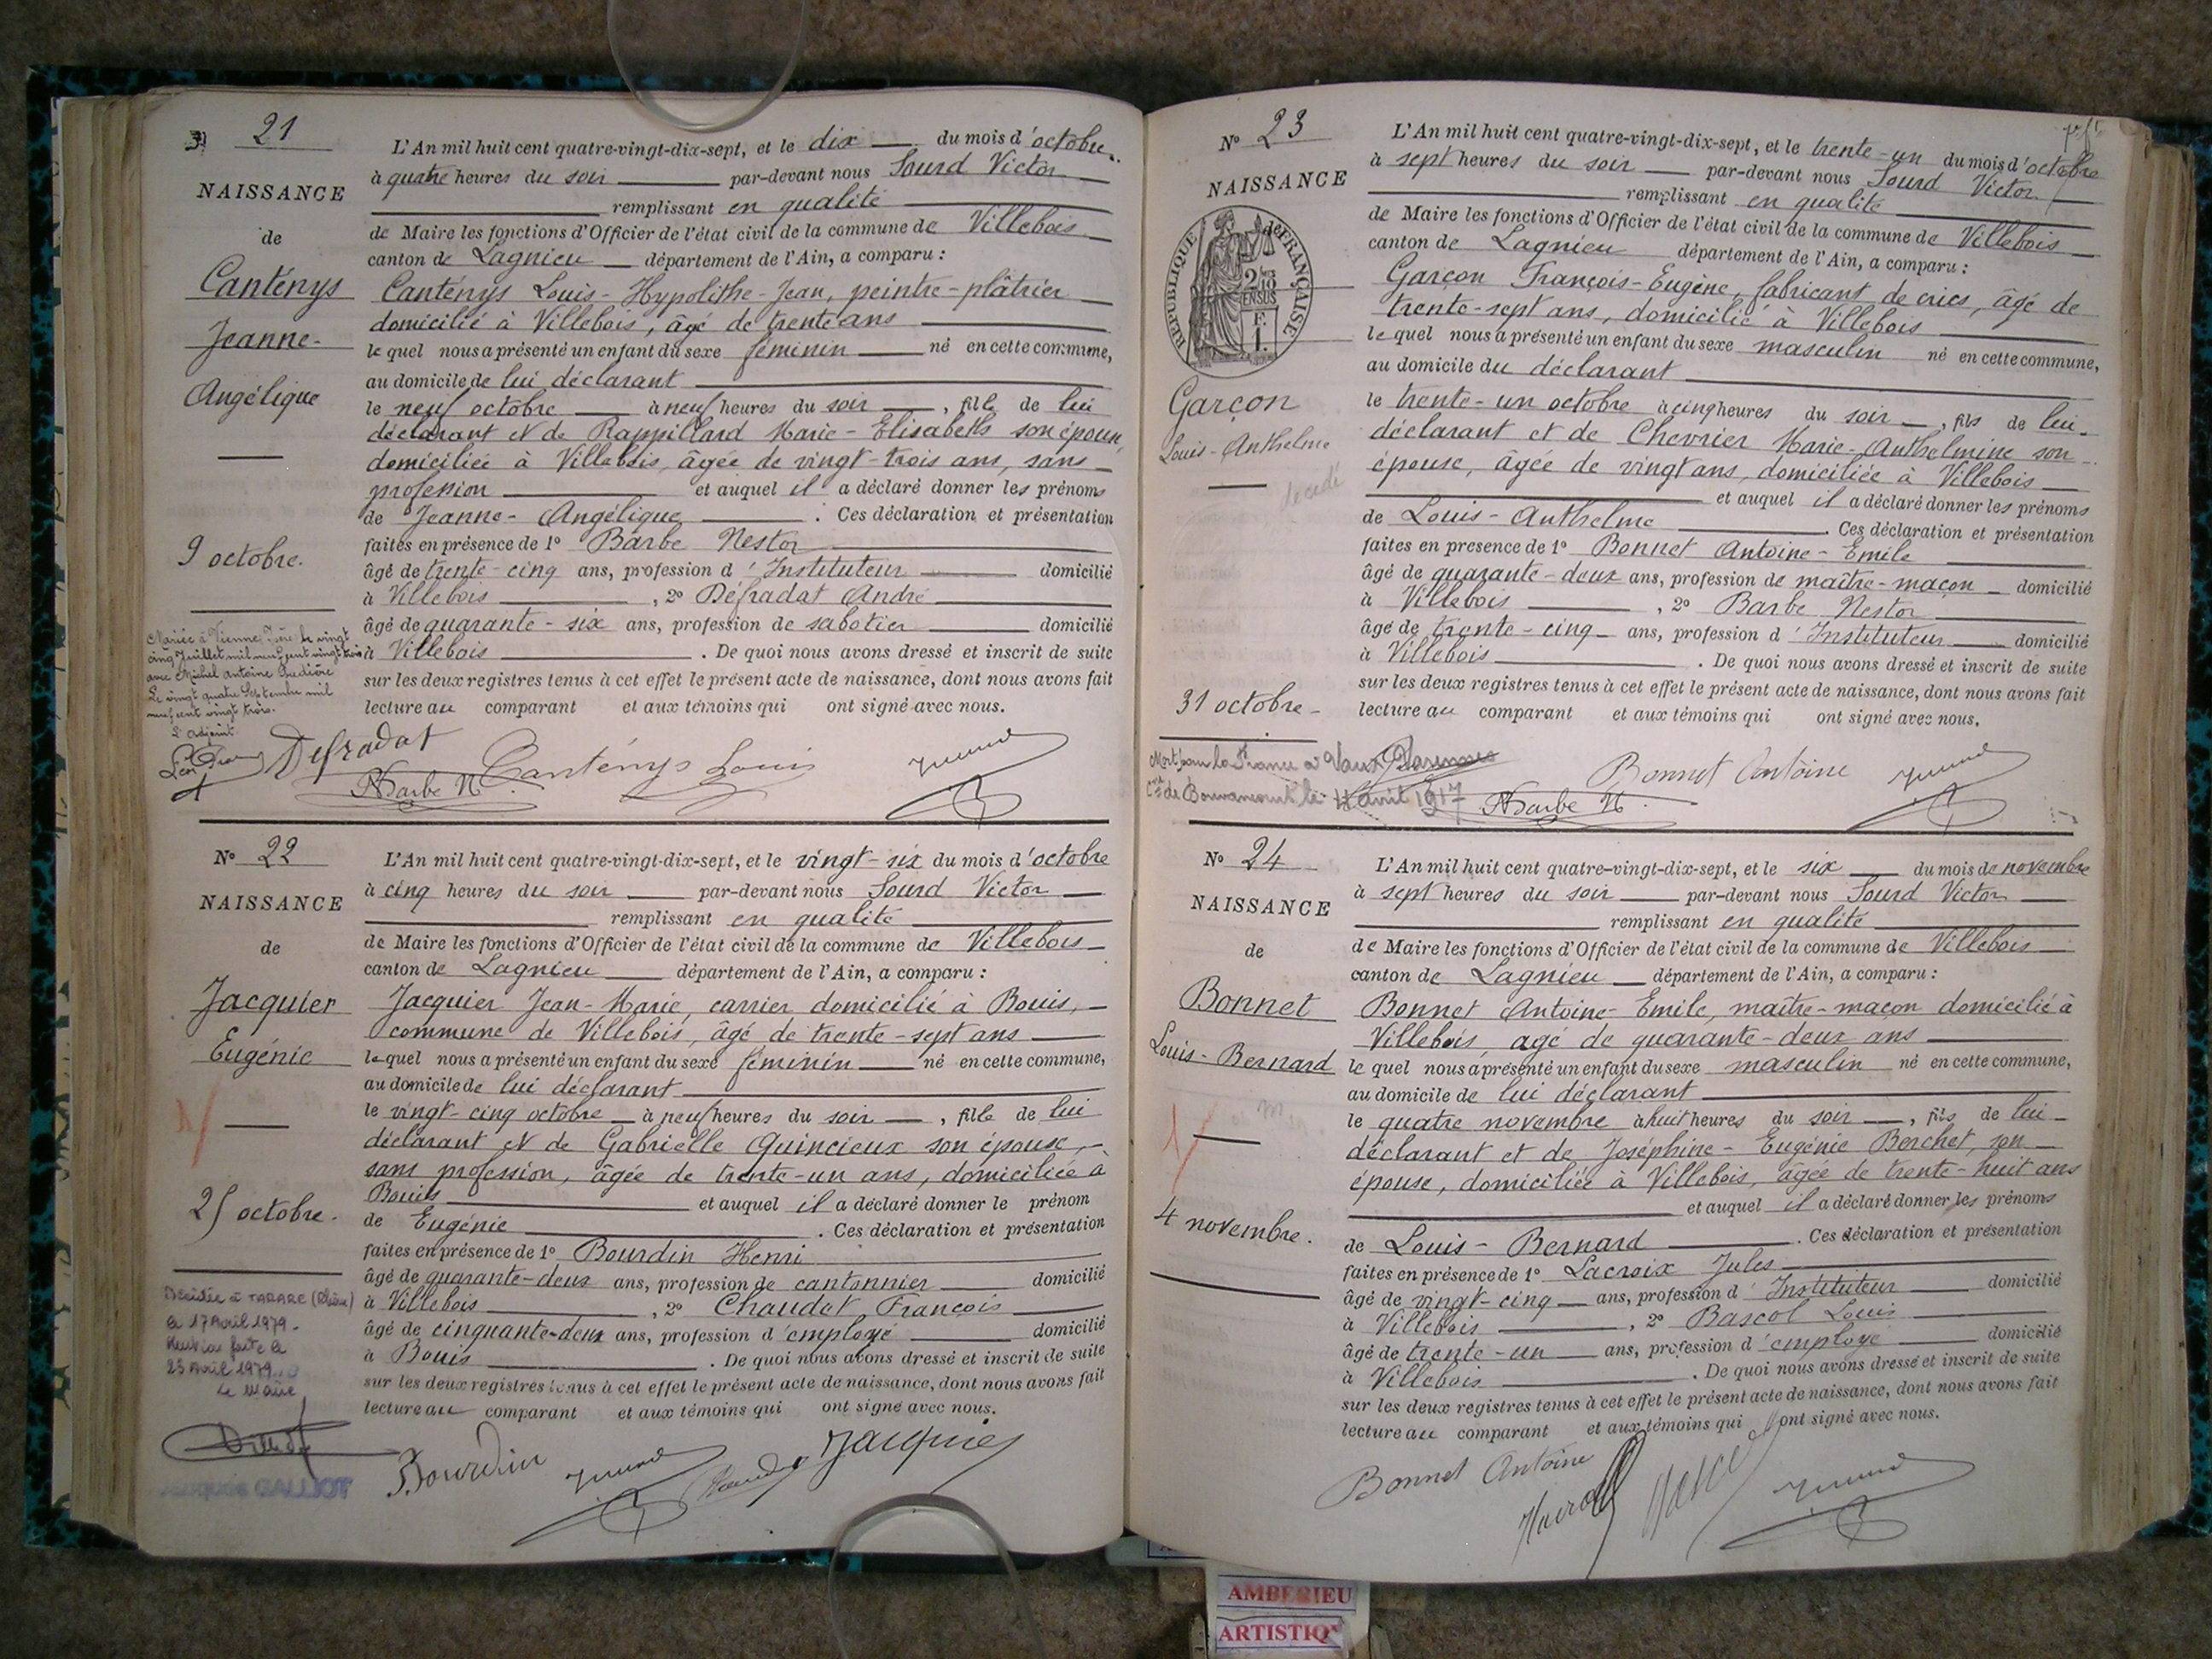 21
NAISSANCE
de
Canténys
Jeanne-
Angélique
9 octobre.
L'An mil huit cent quatre-vingt-dix-sept, et le dix du mois d'octobre
à quatre heures du soir par-devant nous Sourd Victor
remplissant en qualité
de Maire les fonctions d'Officier de l'état civil de la commune de Villebois
canton de Lagnieu département de l'Ain, a comparu :
Canténys Louis-Hypolithe-Jean, peintre-plâtrier
domicilié à Villebois, âgé de trente ans
lequel nous a présenté un enfant du sexe féminin né en cette commune,
au domicile de lui déclarant
le neuf octobre à neuf heures du soir, fille de lui
déclarant et de Rappillard Marie-Elisabeth son épouse,
domiciliée à Villebois, âgée de vingt-trois ans, sans
profession et auquel il a déclaré donner les prénoms
de Jeanne-Angélique. Ces déclaration et présentation
faites en présence de 1° Barbe Nestor
âgé de trente-cinq ans, profession d'Instituteur domicilié
à Villebois, 2° Défradat André
âgé de quarante-six ans, profession de sabotier domicilié
à Villebois. De quoi nous avons dressé et inscrit de suite
sur les deux registres tenus à cet effet le présent acte de naissance, dont nous avons fait
lecture au comparant et aux témoins qui ont signé avec nous.
Mariée à Vienne Isère le vingt
cinq Juillet mil neuf cent vingt trois
avec Michel Antoine
Le vingt quatre Septembre mil
neuf cent vingt trois.
L'adjoint
Defradat
Barbe N.
Canténys Louis
N° 22
NAISSANCE
de
Jacquier
Eugénie
25 octobre.
L'An mil huit cent quatre-vingt-dix-sept, et le vingt-six du mois d'octobre
à cinq heures du soir par-devant nous Sourd Victor
remplissant en qualité
de Maire les fonctions d'Officier de l'état civil de la commune de Villebois
canton de Lagnieu département de l'Ain, a comparu :
Jacquier Jean-Marie, carrier domicilié à Bouis,
commune de Villebois, âgé de trente-sept ans
lequel nous a présenté un enfant du sexe féminin né en cette commune,
au domicile de lui déclarant
le vingt-cinq octobre à neuf heures du soir, fille de lui
déclarant et de Gabrielle Quincieux son épouse,
sans profession, âgée de trente-un ans, domiciliée à
Bouis et auquel il a déclaré donner le prénom
de Eugénie. Ces déclaration et présentation
faites en présence de 1° Bourdin Henri
âgé de quarante-deux ans, profession de cantonnier domicilié
à Villebois, 2° Chaudat François
âgé de cinquante-deux ans, profession d'employé domicilié
à Bouis. De quoi nous avons dressé et inscrit de suite
sur les deux registres tenus à cet effet le présent acte de naissance, dont nous avons fait
lecture au comparant et aux témoins qui ont signé avec nous.
Décédée à TARARE (Rhône)
le 17 Avril 1979.
Mention faite le
23 Avril 1979.
Le Maire
GALLIOT
Bourdin
Jacquier
N° 23
NAISSANCE
RÉPUBLIQUE FRANÇAISE
Garçon
Louis-Anthelme
décédé
31 octobre
L'An mil huit cent quatre-vingt-dix-sept, et le trente-un du mois d'octobre
à sept heures du soir par-devant nous Sourd Victor
remplissant en qualité
de Maire les fonctions d'Officier de l'état civil de la commune de Villebois
canton de Lagnieu département de l'Ain, a comparu :
Garçon François-Eugène, fabricant de crics, âgé de
trente-sept ans, domicilié à Villebois
lequel nous a présenté un enfant du sexe masculin né en cette commune,
au domicile du déclarant
le trente-un octobre à cinq heures du soir, fils de lui
déclarant et de Chevrier Marie-Anthelmine son
épouse, âgée de vingt ans, domiciliée à Villebois
et auquel il a déclaré donner les prénoms
de Louis-Anthelme. Ces déclaration et présentation
faites en presence de 1° Bonnet Antoine-Emile
âgé de quarante-deux ans, profession de maître-maçon domicilié
à Villebois, 2° Barbe Nestor
âgé de trente-cinq ans, profession d'Instituteur domicilié
à Villebois. De quoi nous avons dressé et inscrit de suite
sur les deux registres tenus à cet effet le présent acte de naissance, dont nous avons fait
lecture au comparant et aux témoins qui ont signé avec nous.
Mort pour la France à Vaux Varennes
Cne de Bouvancourt le avril 1917
Bonnet Antoine
Barbe N.
N° 24
NAISSANCE
de
Bonnet
Louis-Bernard
4 novembre.
L'An mil huit cent quatre-vingt-dix-sept, et le six du mois de novembre
à sept heures du soir par-devant nous Sourd Victor
remplissant en qualité
de Maire les fonctions d'Officier de l'état civil de la commune de Villebois
canton de Lagnieu département de l'Ain, a comparu :
Bonnet Antoine-Emile, maître-maçon domicilié à
Villebois, agé de quarante-deux ans
lequel nous a présenté un enfant du sexe masculin né en cette commune,
au domicile de lui déclarant
le quatre novembre à huit heures du soir, fils de lui
déclarant et de Joséphine-Eugénie Berchet, son
épouse, domiciliée à Villebois, âgée de trente-huit ans
et auquel il a déclaré donner les prénoms
de Louis-Bernard. Ces déclaration et présentation
faites en présence de 1° Lacroix Jules
âgé de vingt-cinq ans, profession d'Instituteur domicilié
à Villebois, 2° Bascol Louis
âgé de trente-un ans, profession d'employé domicilié
à Villebois. De quoi nous avons dressé et inscrit de suite
sur les deux registres tenus à cet effet le présent acte de naissance, dont nous avons fait
lecture au comparant et aux témoins qui ont signé avec nous.
Bonnet Antoine
AMBERIEU
ARTISTIQ